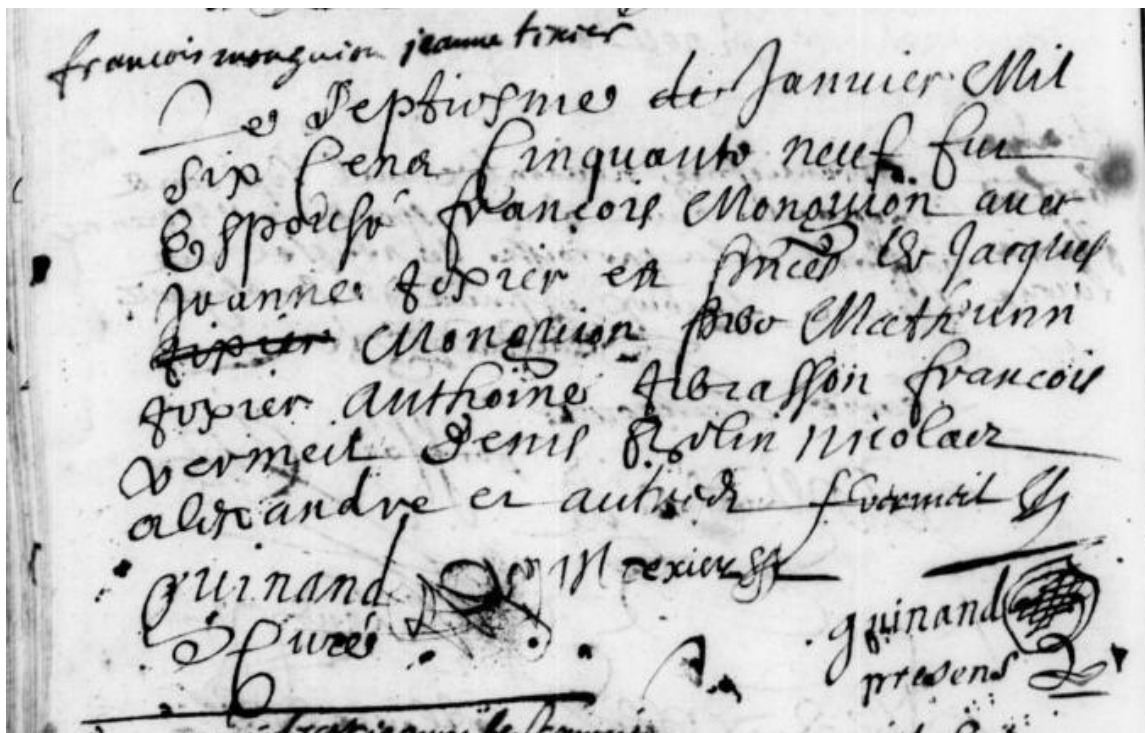 francois monguion jeanne tixier
Le Septiesme de Janvier Mil
six Cens Cinquante neuf fut
Espousé francois Monguion avec
Jeanne texier en p̃nces de Jacques
texier Monguion pere Mathurin
texier Anthoine francois
vermeil Denis Nicolas
alexandre et autres f vermeil
guinand M texier
Curé
guinand
presens